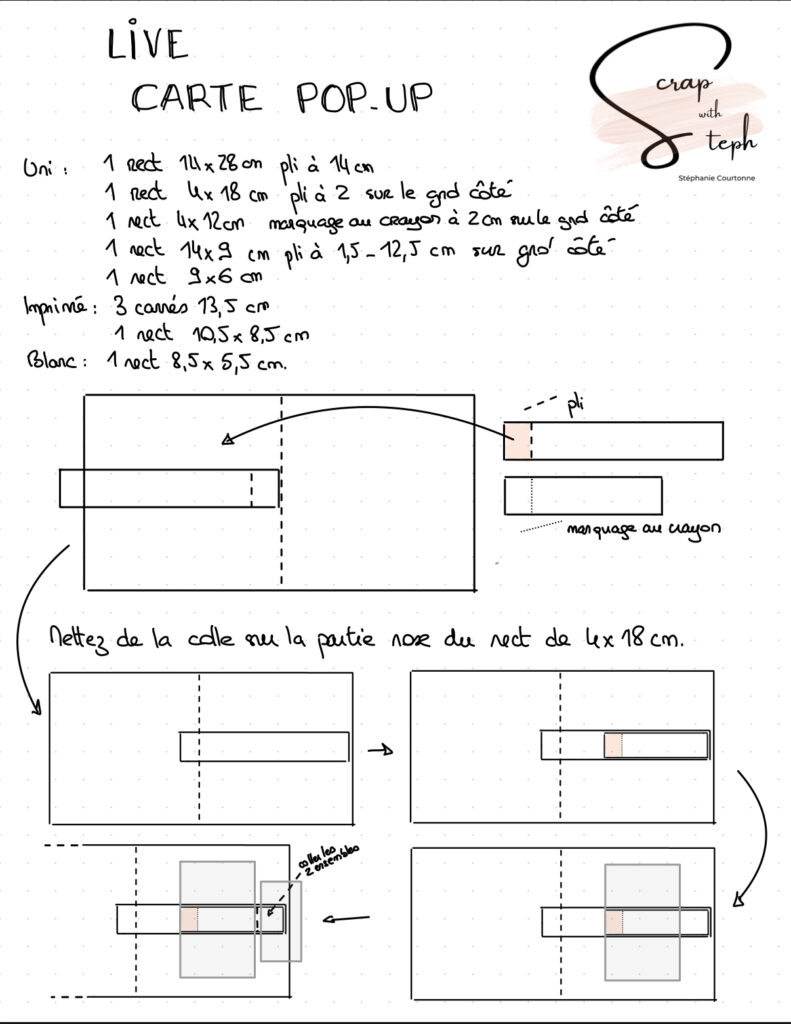 LIVE
CARTE POP-UP
Scrap
with
Steph
Stéphanie Courtonne
Uni : 1 rect 14 x 28 cm pli à 14 cm
1 rect 4 x 18 cm pli à 2 sur le grd côté
1 rect 4 x 12 cm marquage au crayon à 2 cm sur le grd côté
1 rect 14 x 9 cm pli à 1,5 - 12,5 cm sur grd côté
1 rect 9 x 6 cm
Imprimé : 3 carrés 13,5 cm
1 rect 10,5 x 8,5 cm
Blanc : 1 rect 8,5 x 5,5 cm.
pli
marquage au crayon
Mettez de la colle sur la partie rose du rect de 4 x 18 cm.
coller les
2 ensembles